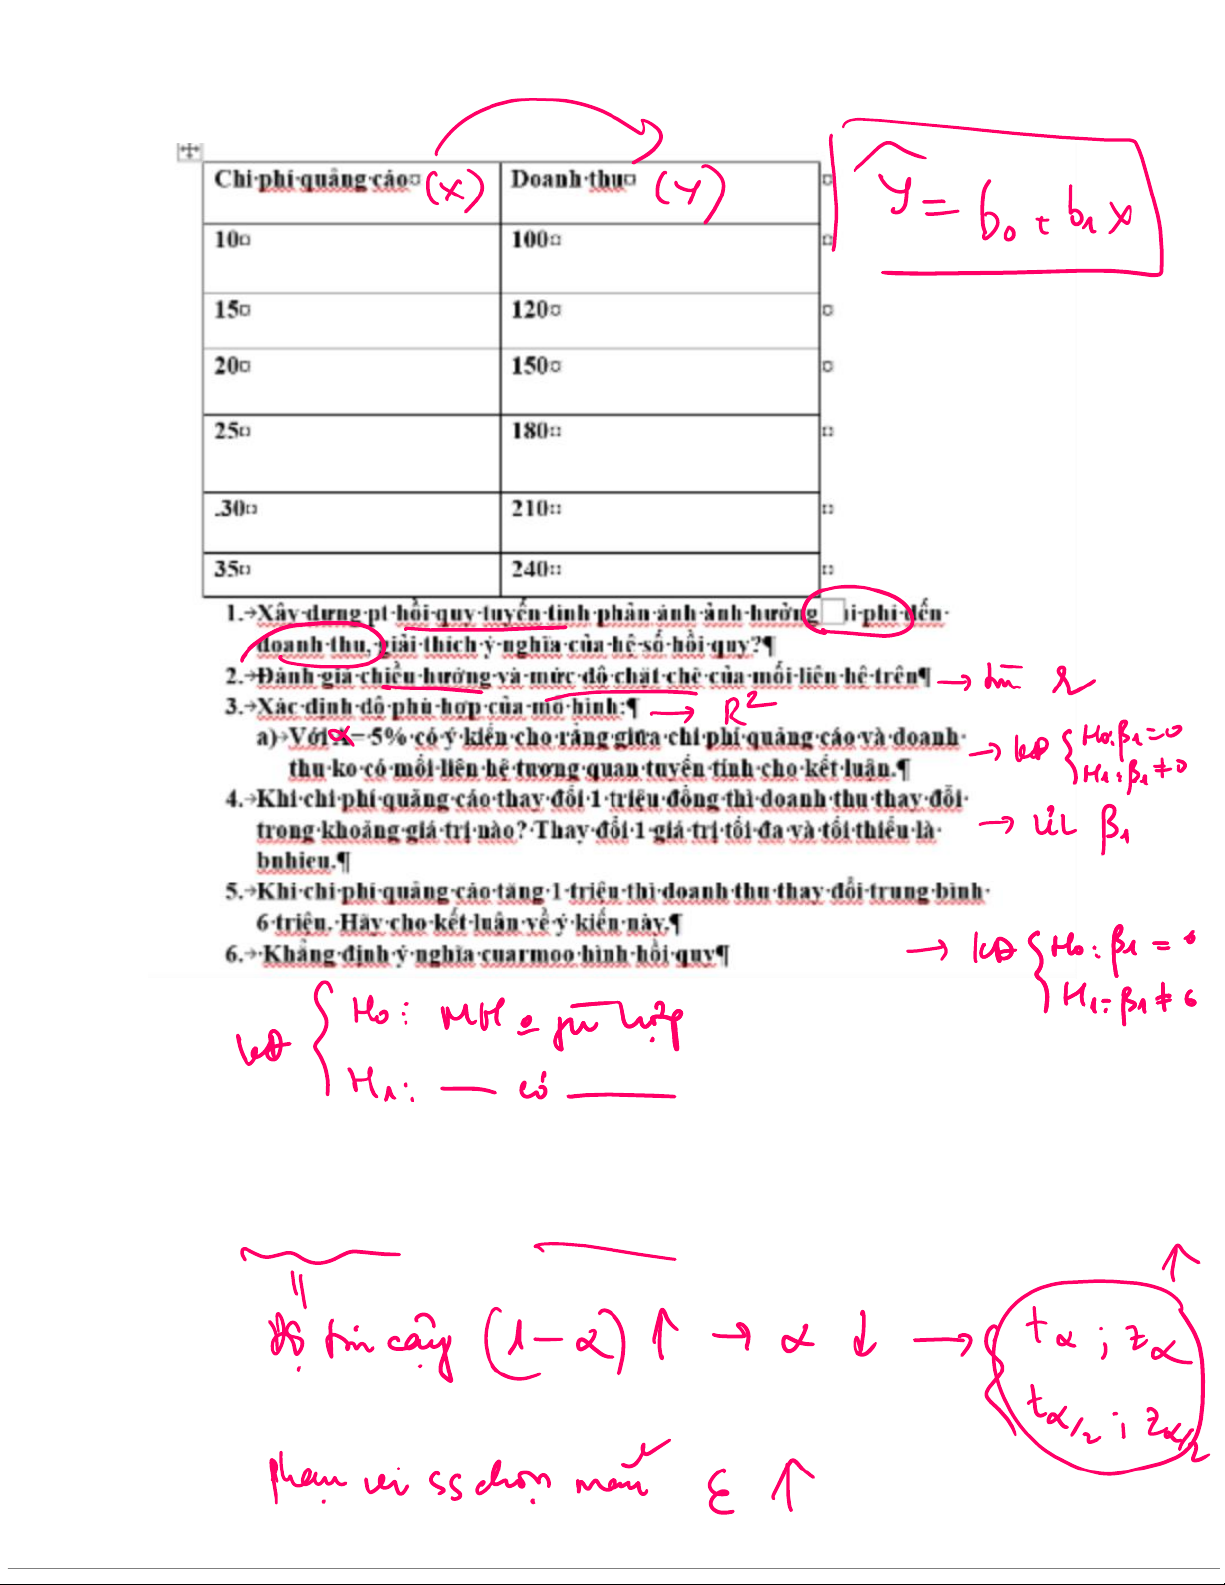 Chi·phí·quảng·cáo¤ (X) Doanh·thu¤ (Y) ¤
ŷ = b₀ + b₁ x
10¤ 100¤ ¤
15¤ 120¤ ¤
20¤ 150¤ ¤
25¤ 180¤ ¤
.30¤ 210¤ ¤
35¤ 240¤ ¤
1.→Xây·dựng·pt·hồi·quy·tuyến·tính·phản·ánh·ảnh·hưởng i·phí·đến·
doanh·thu,·giải·thích·ý·nghĩa·của·hệ·số·hồi·quy?¶
2.→Đánh·giá·chiều·hướng·và·mức·độ·chặt·chẽ·của·mối·liên·hệ·trên¶ → tìm r
3.→Xác·định·độ·phù·hợp·của·mô·hình:¶ → R²
a)→Với·α=·5%·có·ý·kiến·cho·rằng·giữa·chi·phí·quảng·cáo·và·doanh· → KĐ { H₀: β₁ = 0
thu·ko·có·mối·liên·hệ·tương·quan·tuyến·tính·cho·kết·luận.¶ H₁: β₁ ≠ 0
4.→Khi·chi·phí·quảng·cáo·thay·đổi·1·triệu·đồng·thì·doanh·thu·thay·đổi·
trong·khoảng·giá·trị·nào?·Thay·đổi·1·giá·trị·tối·đa·và·tối·thiểu·là· → ƯL β₁
bnhieu.¶
5.→Khi·chi·phí·quảng·cáo·tăng·1·triệu·thì·doanh·thu·thay·đổi·trung·bình·
6·triệu.·Hãy·cho·kết·luận·về·ý·kiến·này.¶ → KĐ { H₀: β₁ = 6
6.→·Khẳng·định·ý·nghĩa·cuarmoo·hình·hồi·quy¶ H₁: β₁ ≠ 6
KĐ { H₀: MH o phù hợp
H₁: — có —
Độ tin cậy (1 – α) ↑ → α ↓ → t α ; z α ↑
t α/2 ; z α/2
Phạm vi ss chọn mẫu ε ↑